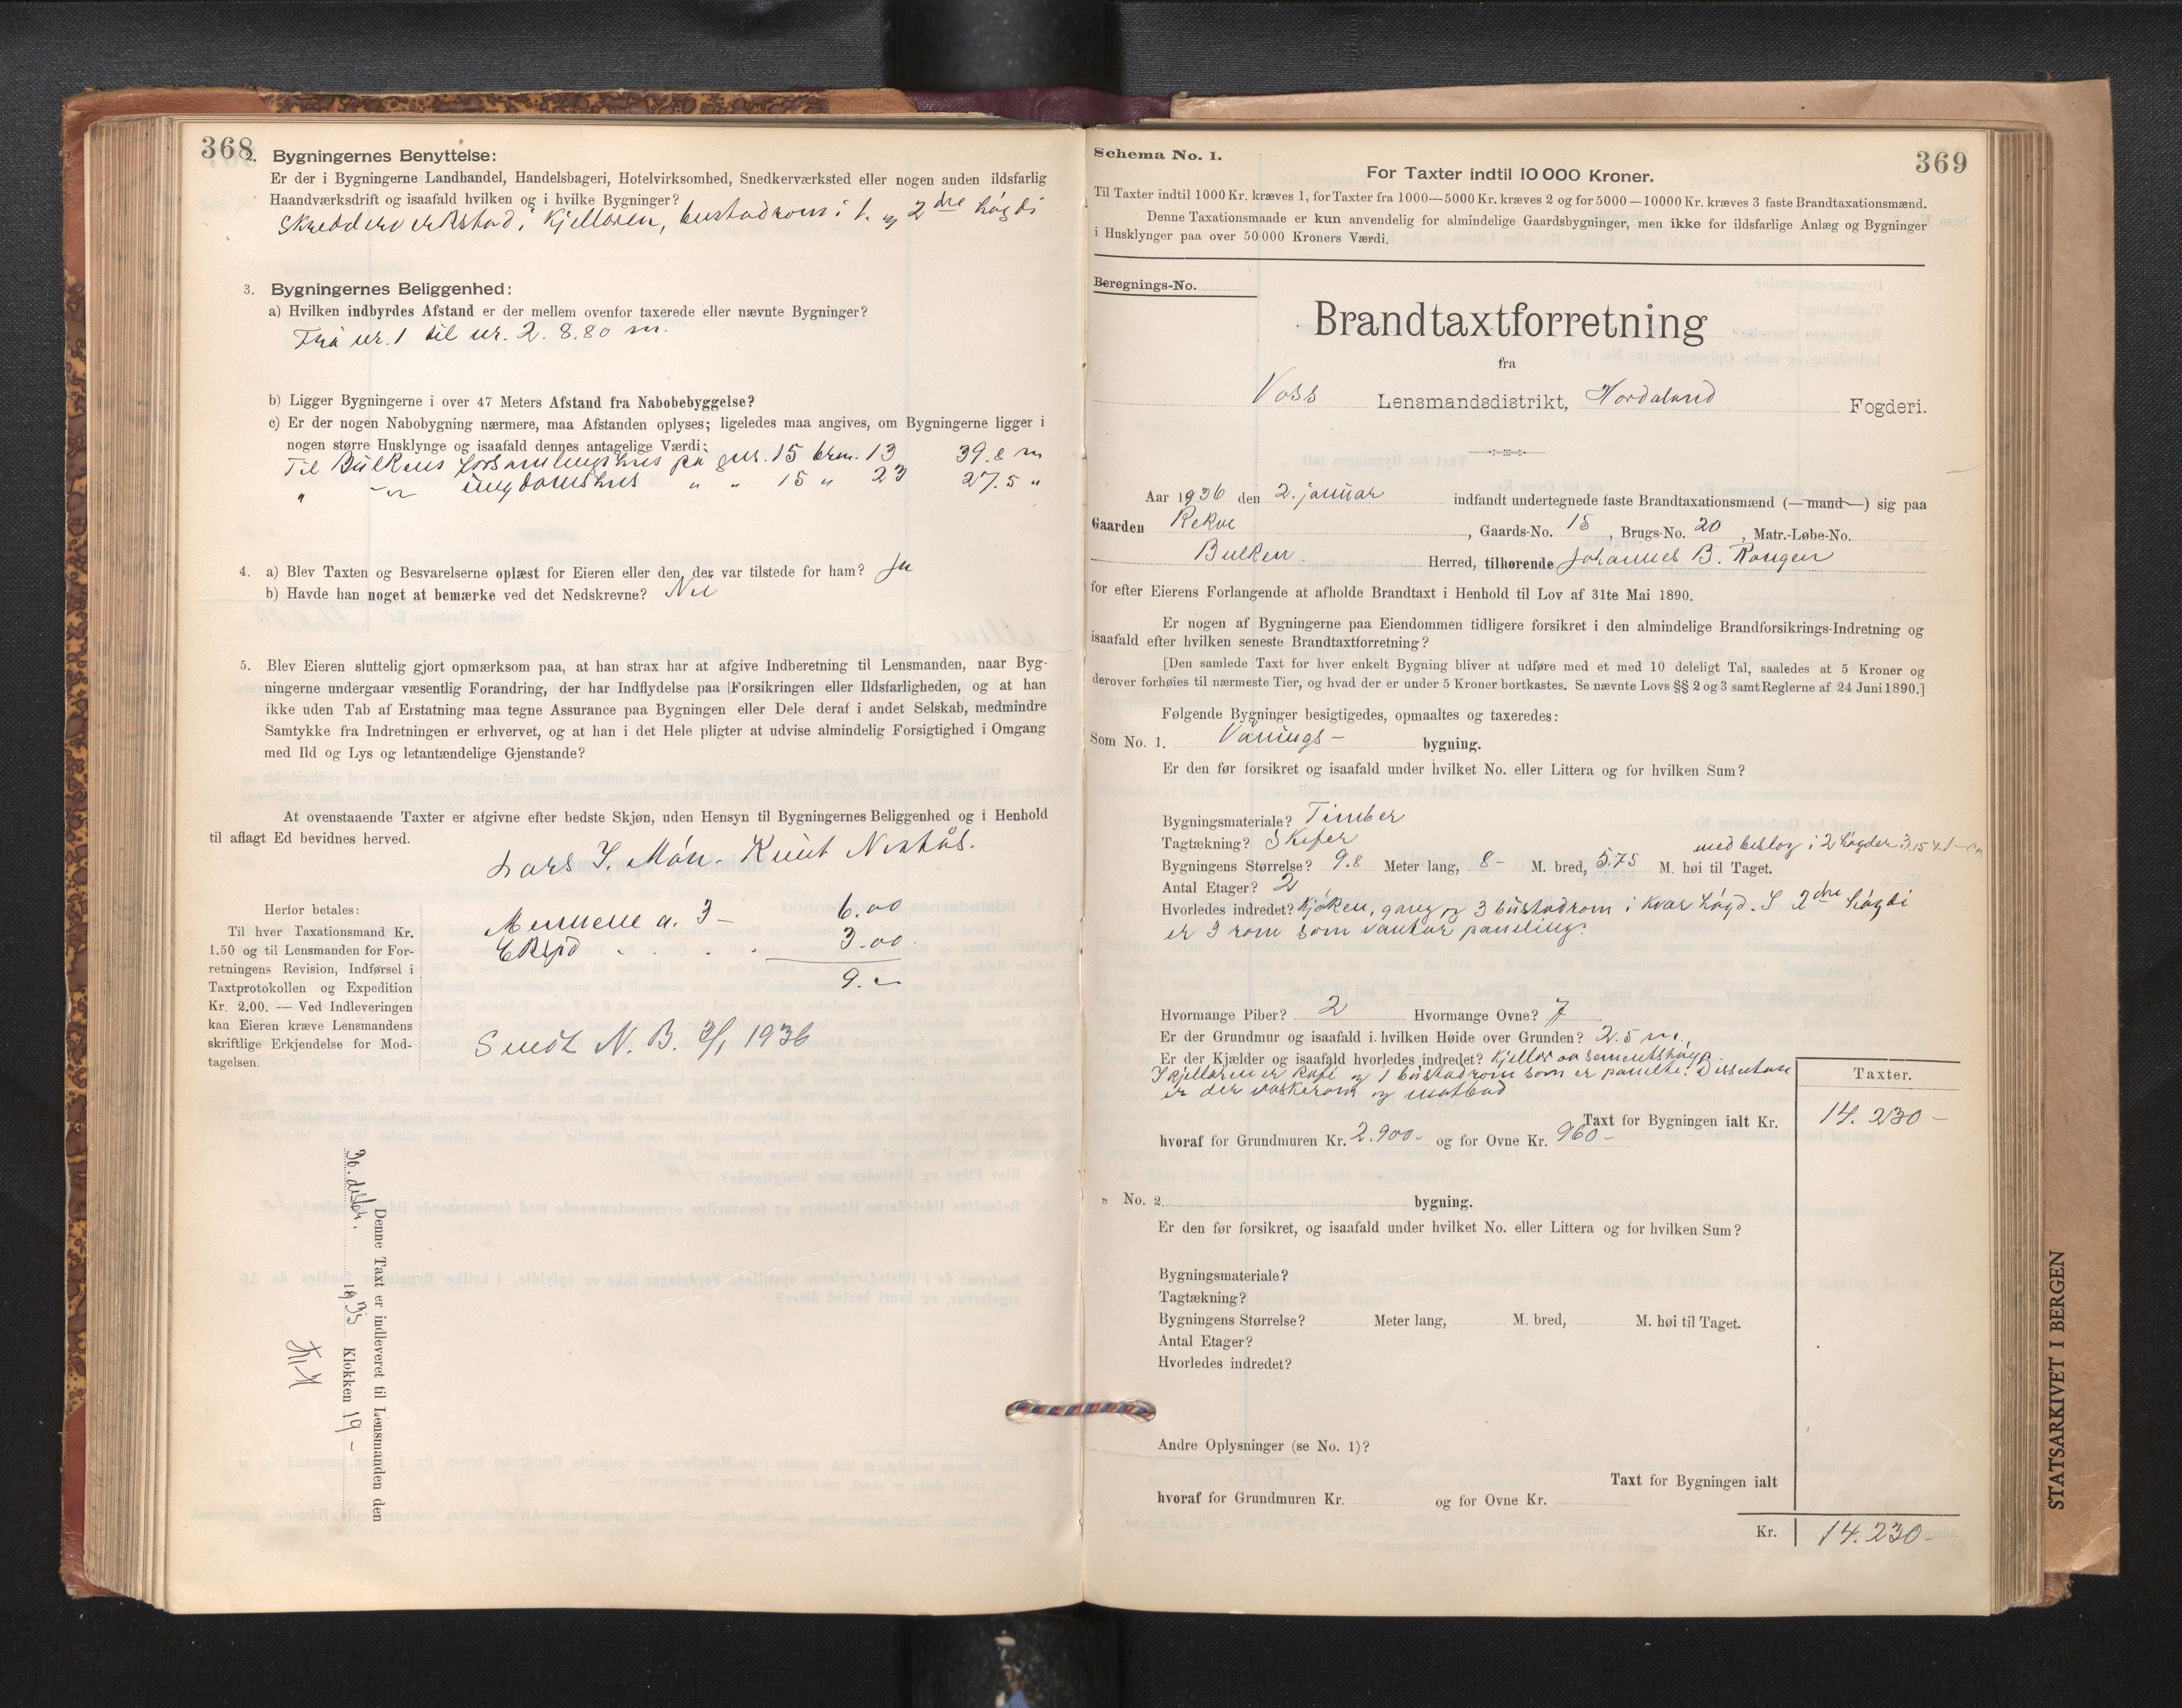 368
2. Bygningernes Benyttelse:
Er der i Bygningerne Landhandel, Handelsbageri, Hotelvirksomhed, Snedkerværksted eller nogen anden ildsfarlig
Haandværksdrift og isaafald hvilken og i hvilke Bygninger?
Skreddarverkstad i Kjellaren, bustadrom i 1. og 2dre høgdi
3. Bygningernes Beliggenhed:
a) Hvilken indbyrdes Afstand er der mellem ovenfor taxerede eller nævnte Bygninger?
Frå nr. 1 til nr. 2. 8.80 m.
b) Ligger Bygningerne i over 47 Meters Afstand fra Nabobebyggelse?
c) Er der nogen Nabobygning nærmere, maa Afstanden oplyses; ligeledes maa angives, om Bygningerne ligger i
nogen større Husklynge og isaafald dennes antagelige Værdi:
Til Bulkens forsamlingshus på gnr. 15 brn. 13 39.8 m
" -"- ungdomshus " " 15 " 23 27.5 "
4. a) Blev Taxten og Besvarelserne oplæst for Eieren eller den, der var tilstede for ham? Ja
b) Havde han noget at bemærke ved det Nedskrevne? Nei
5. Blev Eieren sluttelig gjort opmærksom paa, at han strax har at afgive Indberetning til Lensmanden, naar Byg-
ningerne undergaar væsentlig Forandring, der har Indflydelse paa Forsikringen eller Ildsfarligheden, og at han
ikke uden Tab af Erstatning maa tegne Assurance paa Bygningen eller Dele deraf i andet Selskab, medmindre
Samtykke fra Indretningen er erhvervet, og at han i det Hele pligter at udvise almindelig Forsigtighed i Omgang
med Ild og Lys og letantændelige Gjenstande?
At ovenstaaende Taxter er afgivne efter bedste Skjøn, uden Hensyn til Bygningernes Beliggenhed og i Henhold
til aflagt Ed bevidnes herved.
Lars I. Møn. Knut Nestås.
Herfor betales:
Til hver Taxationsmand Kr.
1.50 og til Lensmanden for For-
retningens Revision, Indførsel i
Taxtprotokollen og Expedition
Kr. 2.00. — Ved Indleveringen
kan Eieren kræve Lensmandens
skriftlige Erkjendelse for Mod-
tagelsen.
Mennene a. 3 – 6.00
Eksp. . . . 3.00
9.–
Sendt N. B. 3/1 1936
Denne Taxt er indleveret til Lensmanden den
30. desbr. 1935 Klokken 19 –
369
Schema No. 1.
For Taxter indtil 10 000 Kroner.
Til Taxter indtil 1000 Kr. kræves 1, for Taxter fra 1000—5000 Kr. kræves 2 og for 5000—10000 Kr. kræves 3 faste Brandtaxationsmænd.
Denne Taxationsmaade er kun anvendelig for almindelige Gaardsbygninger, men ikke for ildsfarlige Anlæg og Bygninger
i Husklynger paa over 50 000 Kroners Værdi.
Beregnings-No.
Brandtaxtforretning
fra
Voss Lensmandsdistrikt, Hordaland Fogderi.
Aar 1936 den 2. januar indfandt undertegnede faste Brandtaxationsmænd (—mand—) sig paa
Gaarden Rekve, Gaards-No. 15, Brugs-No. 20, Matr.-Løbe-No.
Bulken Herred, tilhørende Johannes B. Rongen
for efter Eierens Forlangende at afholde Brandtaxt i Henhold til Lov af 31te Mai 1890.
Er nogen af Bygningerne paa Eiendommen tidligere forsikret i den almindelige Brandforsikrings-Indretning og
isaafald efter hvilken seneste Brandtaxtforretning?
[Den samlede Taxt for hver enkelt Bygning bliver at udføre med et med 10 deleligt Tal, saaledes at 5 Kroner og
derover forhøies til nærmeste Tier, og hvad der er under 5 Kroner bortkastes. Se nævnte Lovs §§ 2 og 3 samt Reglerne af 24 Juni 1890.]
Følgende Bygninger besigtigedes, opmaaltes og taxeredes:
Som No. 1. Vånings- bygning.
Er den før forsikret og isaafald under hvilket No. eller Littera og for hvilken Sum?
Bygningsmateriale? Timber
Tagtækning? Skifer
med beslag i 2 høgder 3.15 x
Bygningens Størrelse? 9.8 Meter lang, 8- M. bred, 5.75 M. høi til Taget.
Antal Etager? 2
Hvorledes indredet? Kjøken, gang og 3 bustadrom i kvar høgd. I 2dre høgdi
er 3 rom som vantar paneling.
Hvormange Piber? 2 Hvormange Ovne? 7
Er der Grundmur og isaafald i hvilken Høide over Grunden? 2.5 m.
Er der Kjælder og isaafald hvorledes indredet? Kjellar av sementstøyp.
I kjellaren er kafé og 1 bustadrom som er panelte. Dissutan
er der vaskerom og matbod
Taxter.
Taxt for Bygningen ialt Kr. 14.230-
hvoraf for Grundmuren Kr. 2.900.- og for Ovne Kr. 960-
" No. 2. bygning.
Er den før forsikret, og isaafald under hvilket No. eller Littera og for hvilken Sum?
Bygningsmateriale?
Tagtækning?
Bygningens Størrelse? Meter lang, M. bred, M. høi til Taget.
Antal Etager?
Hvorledes indredet?
Andre Oplysninger (se No. 1)?
Taxt for Bygningen ialt
hvoraf for Grundmuren Kr. og for Ovne Kr.
Kr. 14.230-
STATSARKIVET I BERGEN